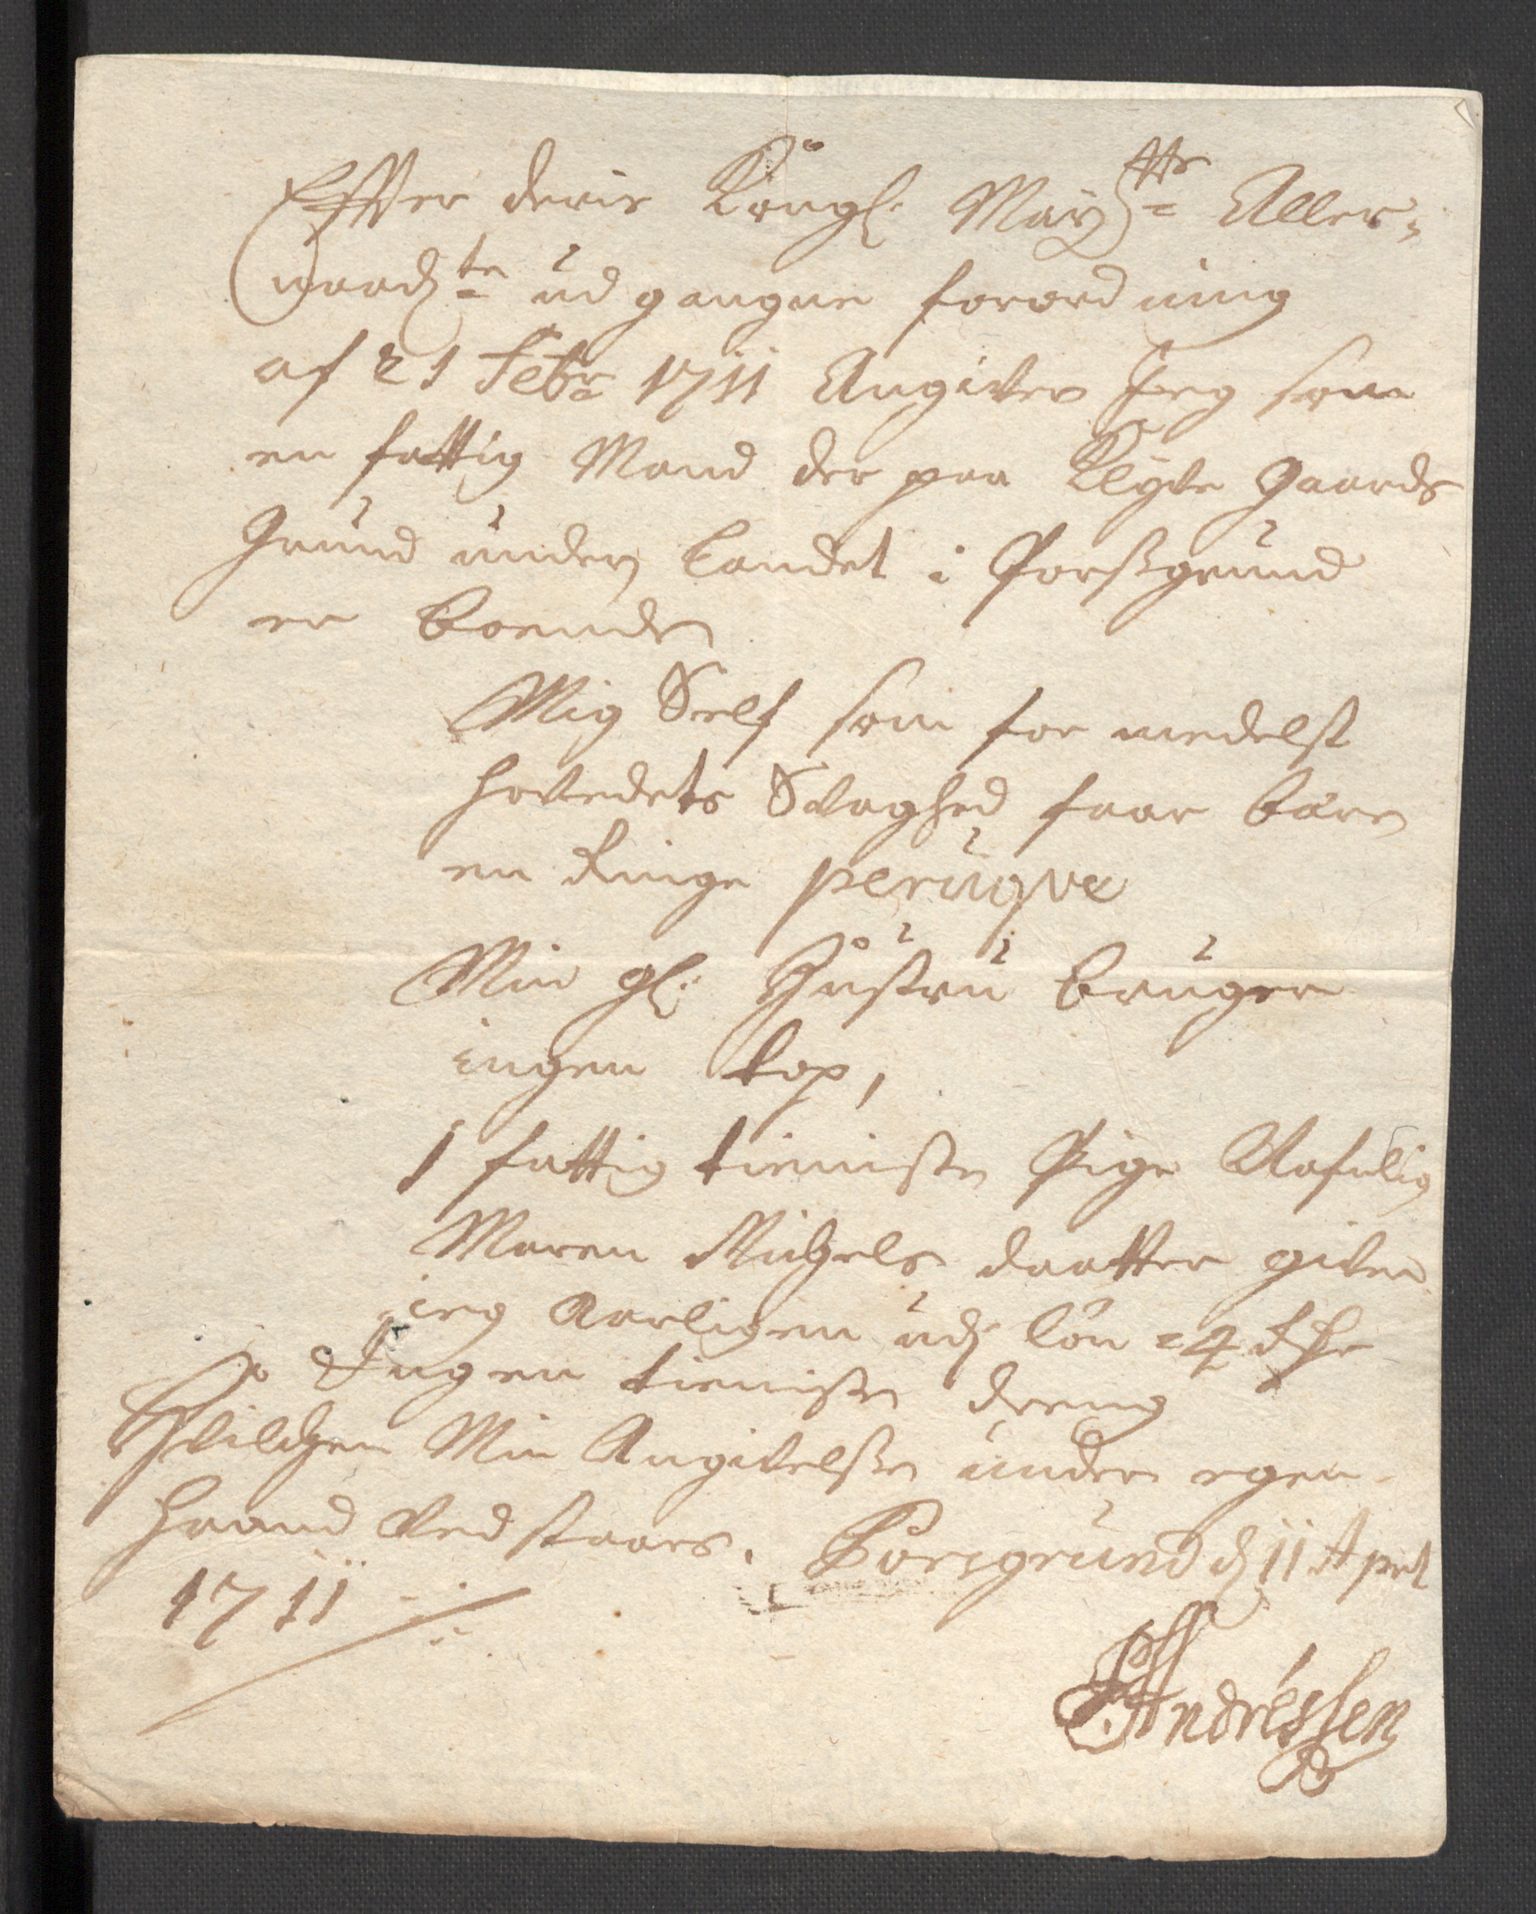 Effter deris Kongl. May^tts Aller-
naad^te udgangne forordning
af 21 Febr 1711 Angiver Jeg som
en fattig Mand der paa Klyve Gaards
Grund under Landet i Porßgrund
er boende
Mig Self som formedelst
hovedets Svaghed faar bære
en Ringe perugve
Min gl. Hustru bruger
ingen top,
1 fattig tieniste Pige Nafnlig
Maren Michels daatter giver
ieg Aarligen udj løn = 4 Rdr
Ingen tieniste dreng
Hvilchen Min Angivelse under egen
haand Vedstaars. Porsgrund d 11 April
1711
Andressen